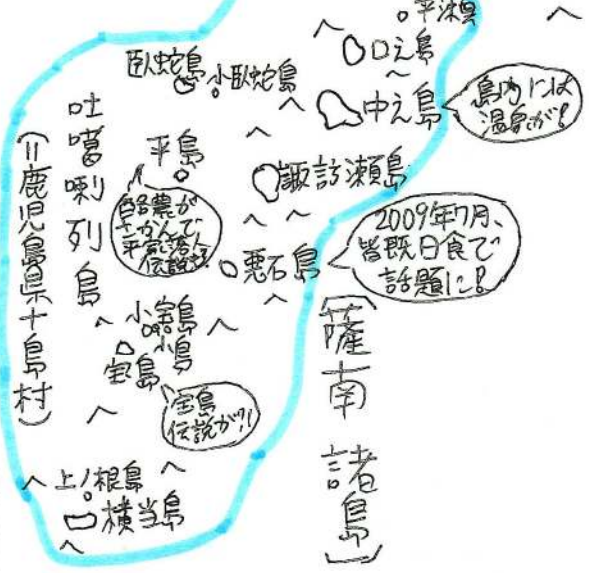 平瀬
口之島
臥蛇島
小臥蛇島
中之島
島内には
温泉が!
吐噶喇列島
(=鹿児島県十島村)
平島
酪農が
さかんで、
平家落人
伝説も!
諏訪瀬島
悪石島
2009年7月、
皆既日食で
話題に!
小宝島
小島
宝島
宝島
伝説が?!
上ノ根島
横当島
[薩南諸島]